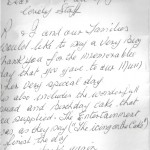 lovely staff
& I and our Families
would like to say a very Big
thank you for the memorable
day that you gave to our Mum
her very special day
also includes the wonderful
and Birthday Cake that
supplied. The Entertainment
as they say ("The icing on the Cake")
the day